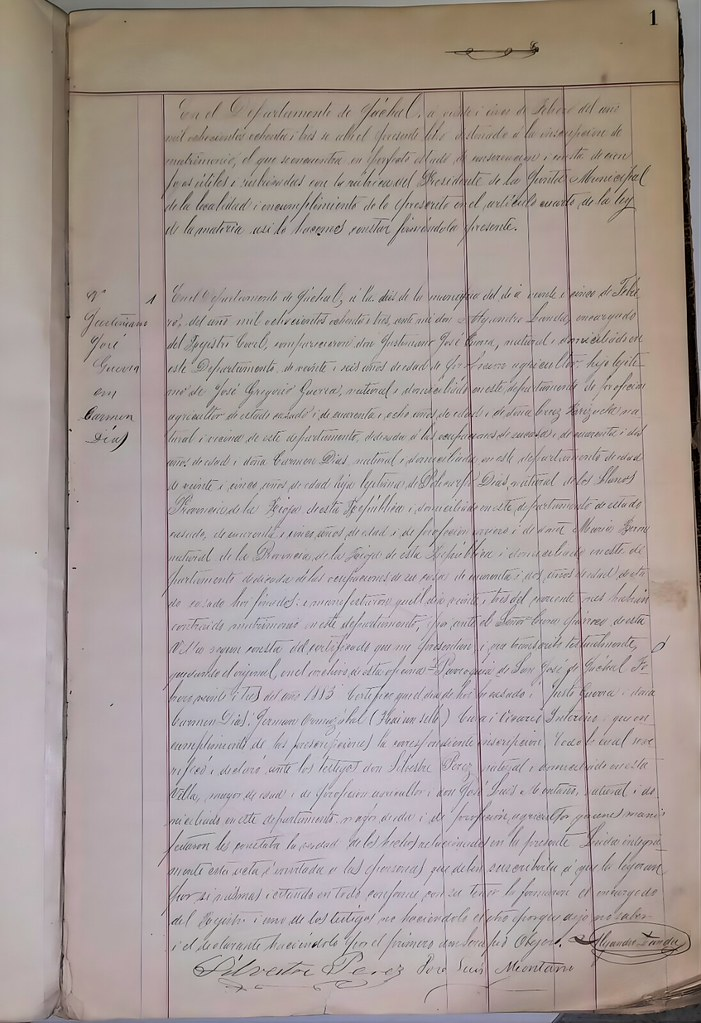 1
En el Departamento de Jáchal, á veinte i cinco de Febrero del año
mil ochocientos ochenta i tres se abre el presente libro destinado á la inscripcion de
matrimonio, el que se encuentra en perfecto estado de conservacion i consta de cien
fojas útiles i rubricadas con la rúbrica del Presidente de la Junta Municipal
de la localidad i en cumplimiento de lo prescrito en el artículo cuarto de la ley
de la materia así lo hacemos constar firmándola presente.
Nº 1
Justiniano
José
Guerra
con
Carmen
Días
En el Departamento de Jáchal, á las dies de la mañana del dia veinte i cinco de Febre
ro, del año mil ochocientos ochenta i tres, ante mi don Alejandro encargado
del Registro Civil, comparecieron don Justiniano José Guerra, natural i domiciliado en
este Departamento de veinte i seis años de edad de profesion agricultor hijo lejiti
mo de José Gregorio Guerra, natural i domiciliado en este departamento de profesion
agricultor de estado casado i de cuarenta i ocho años de edad i de doña Cruz na
tural i vecina de este departamento, dedicada á las ocupaciones de su casa i de cuarenta i dos
años de edad i doña Carmen Dias, natural i domiciliada en este departamento de edad
de veinte i cinco años de edad hija lejitima de Dias, natural de los Llanos
Provincia de la Rioja de esta República i domiciliado en este departamento de estado
casado, de cuarenta i cinco años de edad i de profesion i de doña Maria
natural de la Provincia de la Rioja de esta República i domiciliada en este de
partamento dedicada á las ocupaciones de su casa de cuarenta i dos años de edad de esta
do casado i manifestaron que el dia veinte i tres del presente mes habian
contraido matrimonio en este departamento, ante el Señor Cura párroco de esta
Villa segun consta del certificado que me presentan, i que transcrito testualmente,
quedando el original, en el archivo de esta oficina Parroquia de San José de Jachal Fe-
brero veinte i tres del año 1883 Certifico que el dia de hoi he casado á Justo Guerra i doña
Carmen Dias. German (Hai un sello) Cura i Vicario Interino i que en
cumplimiento de las prescripciones la correspondiente inscripcion. Todo lo cual se ve
rificó i declaró ante los testigos don Silvestre Perez natural i domiciliado en esta
Villa, mayor de edad i de profesion agricultor i don José Luis Montaño, natural i do
miciliado en este departamento mayor de edad i de profesion agricultor quienes mani-
festaron les constaba la verdad de los hechos relacionados en la presente. Leida integra
mente esta acta é invitada á las personas que deben suscribirla á que la leyeran
por si mismas i estando en todo conforme con su tenor la firmaron el encargado
del Registro i uno de los testigos no haciéndolo el otro porque dijo no saber
i el declarante haciéndolo por el primero don
Silvestre Perez José Luis Montaño